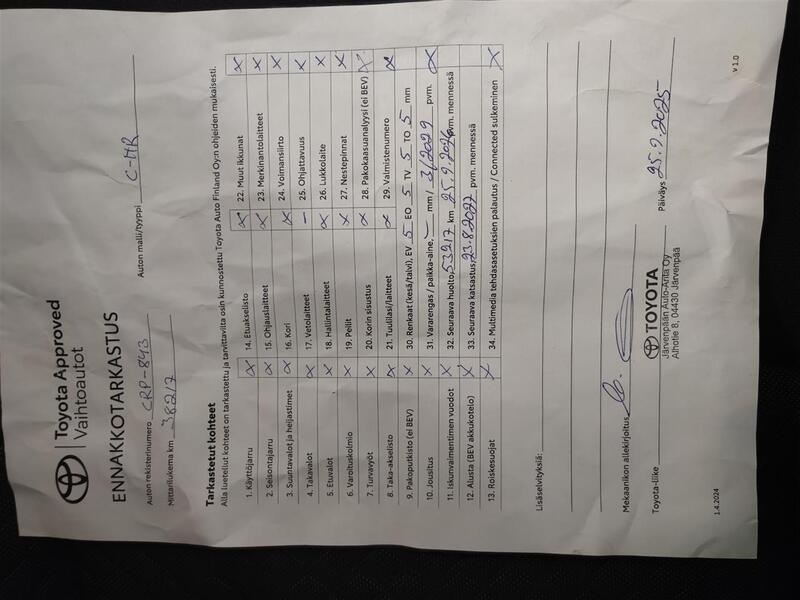 Toyota Approved
Vaihtoautot
ENNAKKOTARKASTUS
Auton rekisterinumero CRP-843 Auton malli/tyyppi C-HR
Mittarilukema km 38217
Tarkastetut kohteet
Alla luetellut kohteet on tarkastettu ja tarvittavilta osin kunnostettu Toyota Auto Finland Oy:n ohjeiden mukaisesti.
1. Käyttöjarru X 14. Etuakselisto X 22. Muut ikkunat X
2. Seisontajarru X 15. Ohjauslaitteet X 23. Merkinantolaitteet X
3. Suuntavalot ja heijastimet X 16. Kori X 24. Voimansiirto X
4. Takavalot X 17. Vetolaitteet – 25. Ohjattavuus X
5. Etuvalot X 18. Hallintalaitteet X 26. Lukkolaite X
6. Varoituskolmio X 19. Peilit X 27. Nestepinnat X
7. Turvavyöt X 20. Korin sisustus X 28. Pakokaasuanalyysi (ei BEV) X
8. Taka-akselisto X 21. Tuulilasi/laitteet X 29. Valmistenumero X
9. Pakoputkisto (ei BEV) X 30. Renkaat (kesä/talvi), EV 5 EO 5 TV 5 TO 5 mm
10. Jousitus X 31. Vararengas / paikka-aine, – mm / 3/2029 pvm. X
11. Iskunvaimentimen vuodot X 32. Seuraava huolto, 53217 km 25.9.2026 pvm. mennessä
12. Alusta (BEV akkukotelo) X 33. Seuraava katsastus, 23.8.2027 pvm. mennessä
13. Roiskesuojat X 34. Multimedia tehdasasetuksien palautus / Connected sulkeminen X
Lisäselvityksiä:
Mekaanikon allekirjoitus
Toyota-liike TOYOTA Päiväys 25.9.2025
Järvenpään Auto-Arita Oy
Alhotie 8, 04430 Järvenpää
1.4.2024 v 1.0